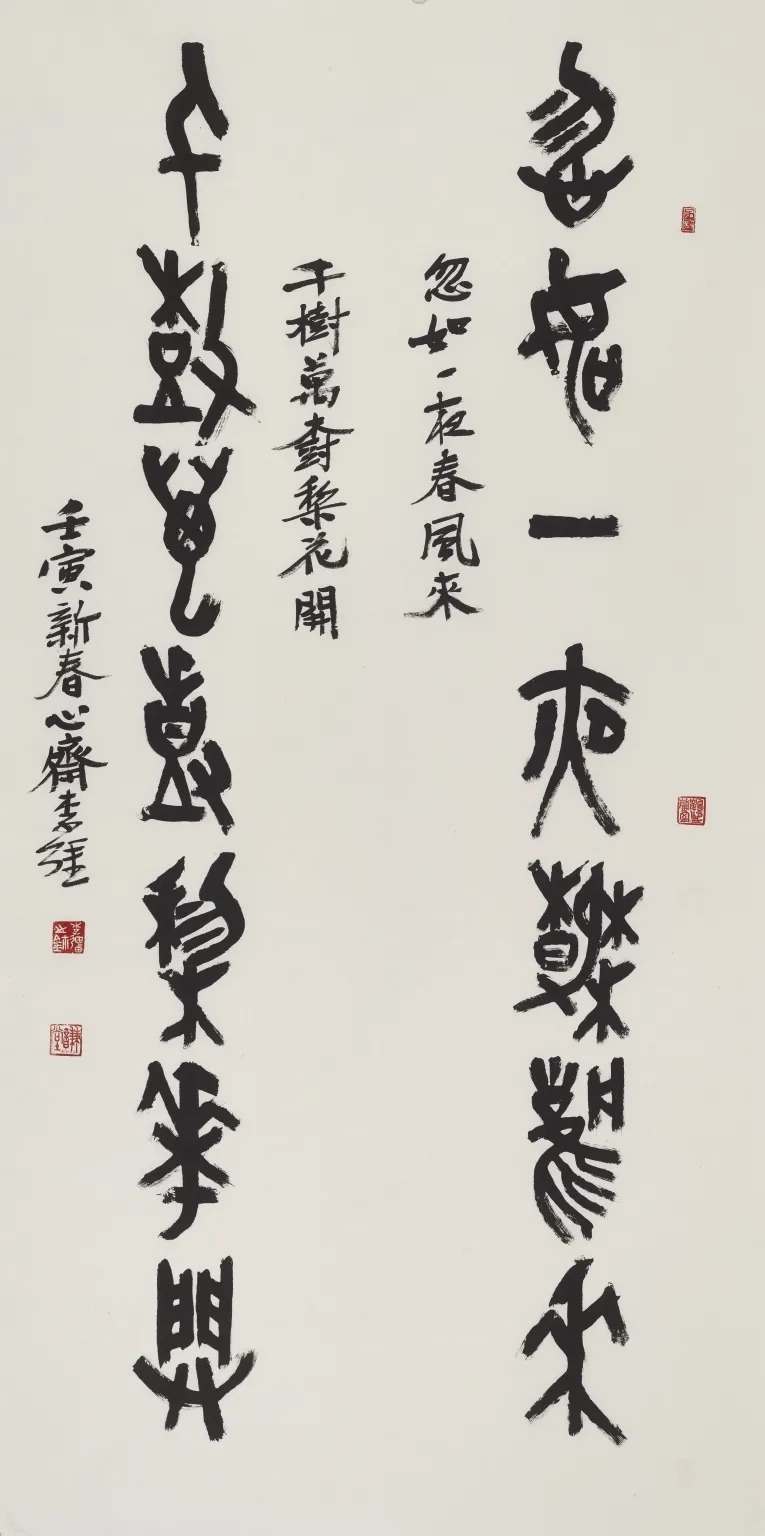 忽如一夜春風來
忽如一夜春風來
千樹萬樹梨花開
千樹萬樹梨花開
壬寅新春心齋李强